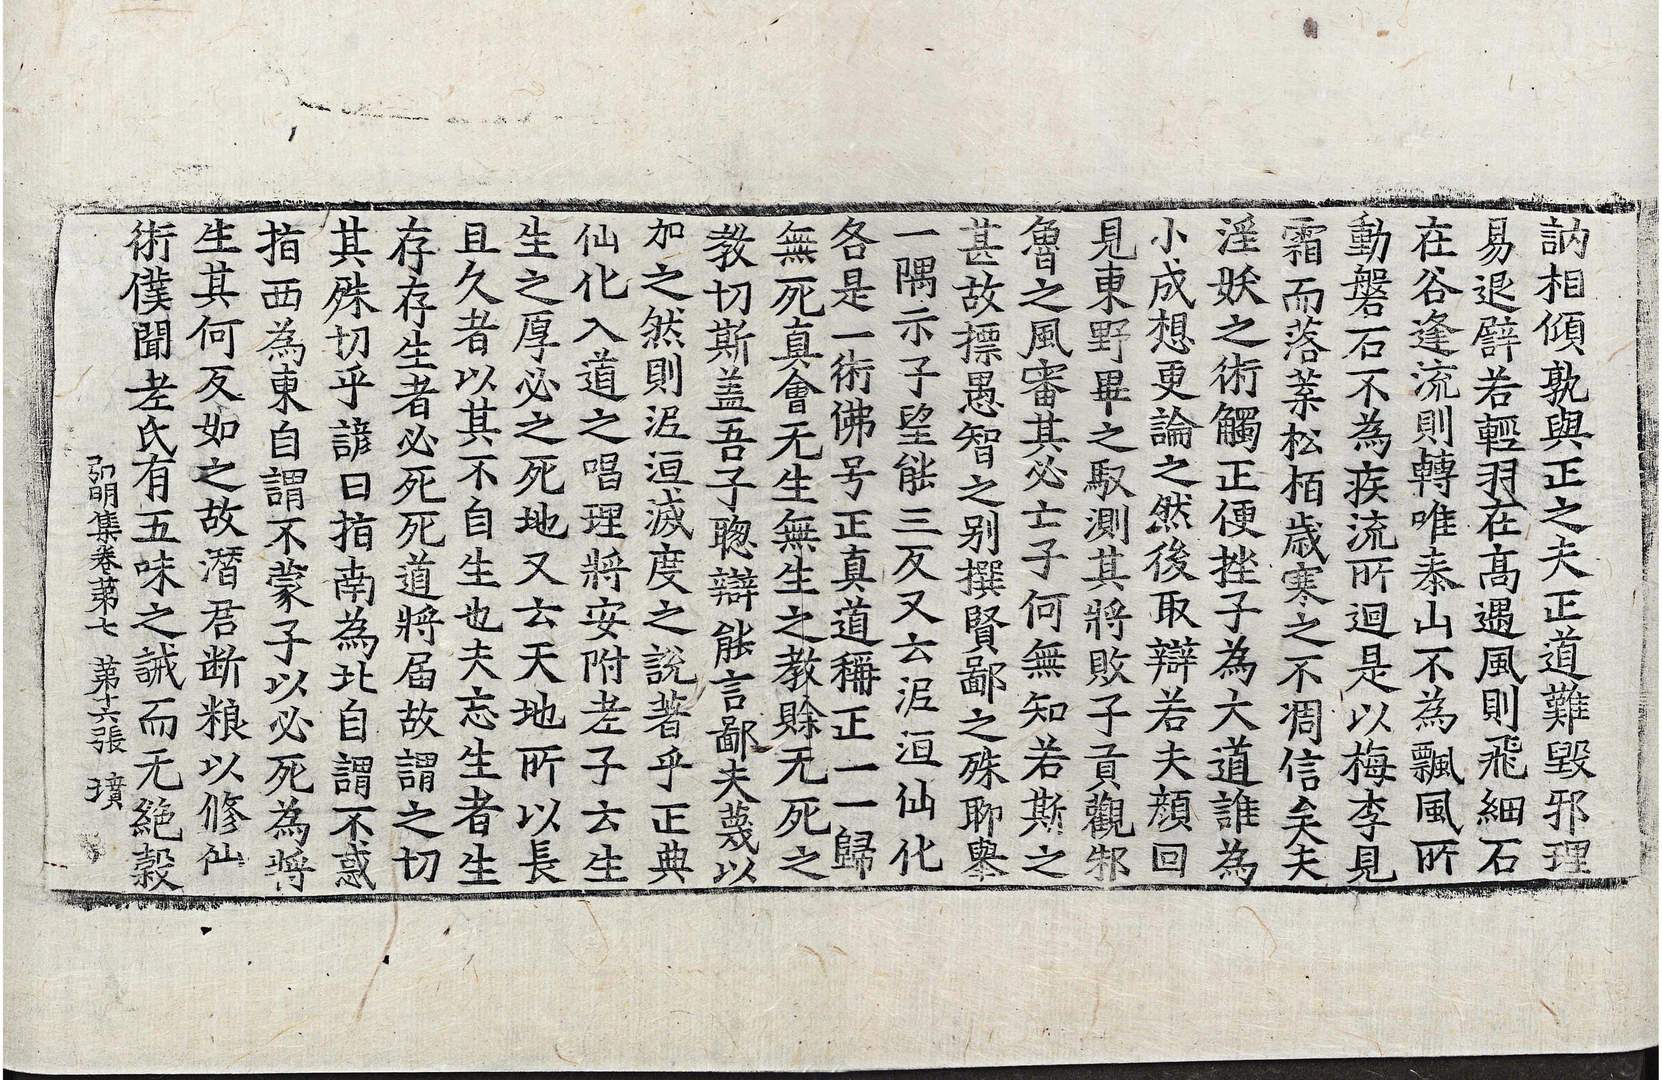 訥相傾孰與正之夫正道難毀邪理
易退辟若輕羽在高遇風則飛細石
在谷逢流則轉唯泰山不為飄風所
動磐石不為疾流所迴是以梅李見
霜而落葉松栢歳寒之不凋信矣夫
淫妖之術觸正便挫子為大道誰為
小成想更論之然後取辯若夫顔回
見東野畢之馭測其將敗子貢觀邾
魯之風審其必亡子何無知若斯之
甚故摽愚智之别撰賢鄙之殊聊舉
一隅示子望能三反又云泥洹仙化
各是一術佛号正真道稱正一一歸
無死真會无生無生之教賖无死之
教切斯盖吾子聦辯能言鄙夫蔑以
加之然則泥洹滅度之説著乎正典
仙化入道之唱理將安附老子云生
生之厚必之死地又云天地所以長
且久者以其不自生也夫忘生者生
存存生者必死死道將届故謂之切
其殊切乎諺曰指南為北自謂不惑
指西為東自謂不蒙子以必死為將
生其何反如之故潛君断粮以修仙
術僕聞老氏有五味之誡而无絶穀
弘明集卷苐七　苐十六張　璜